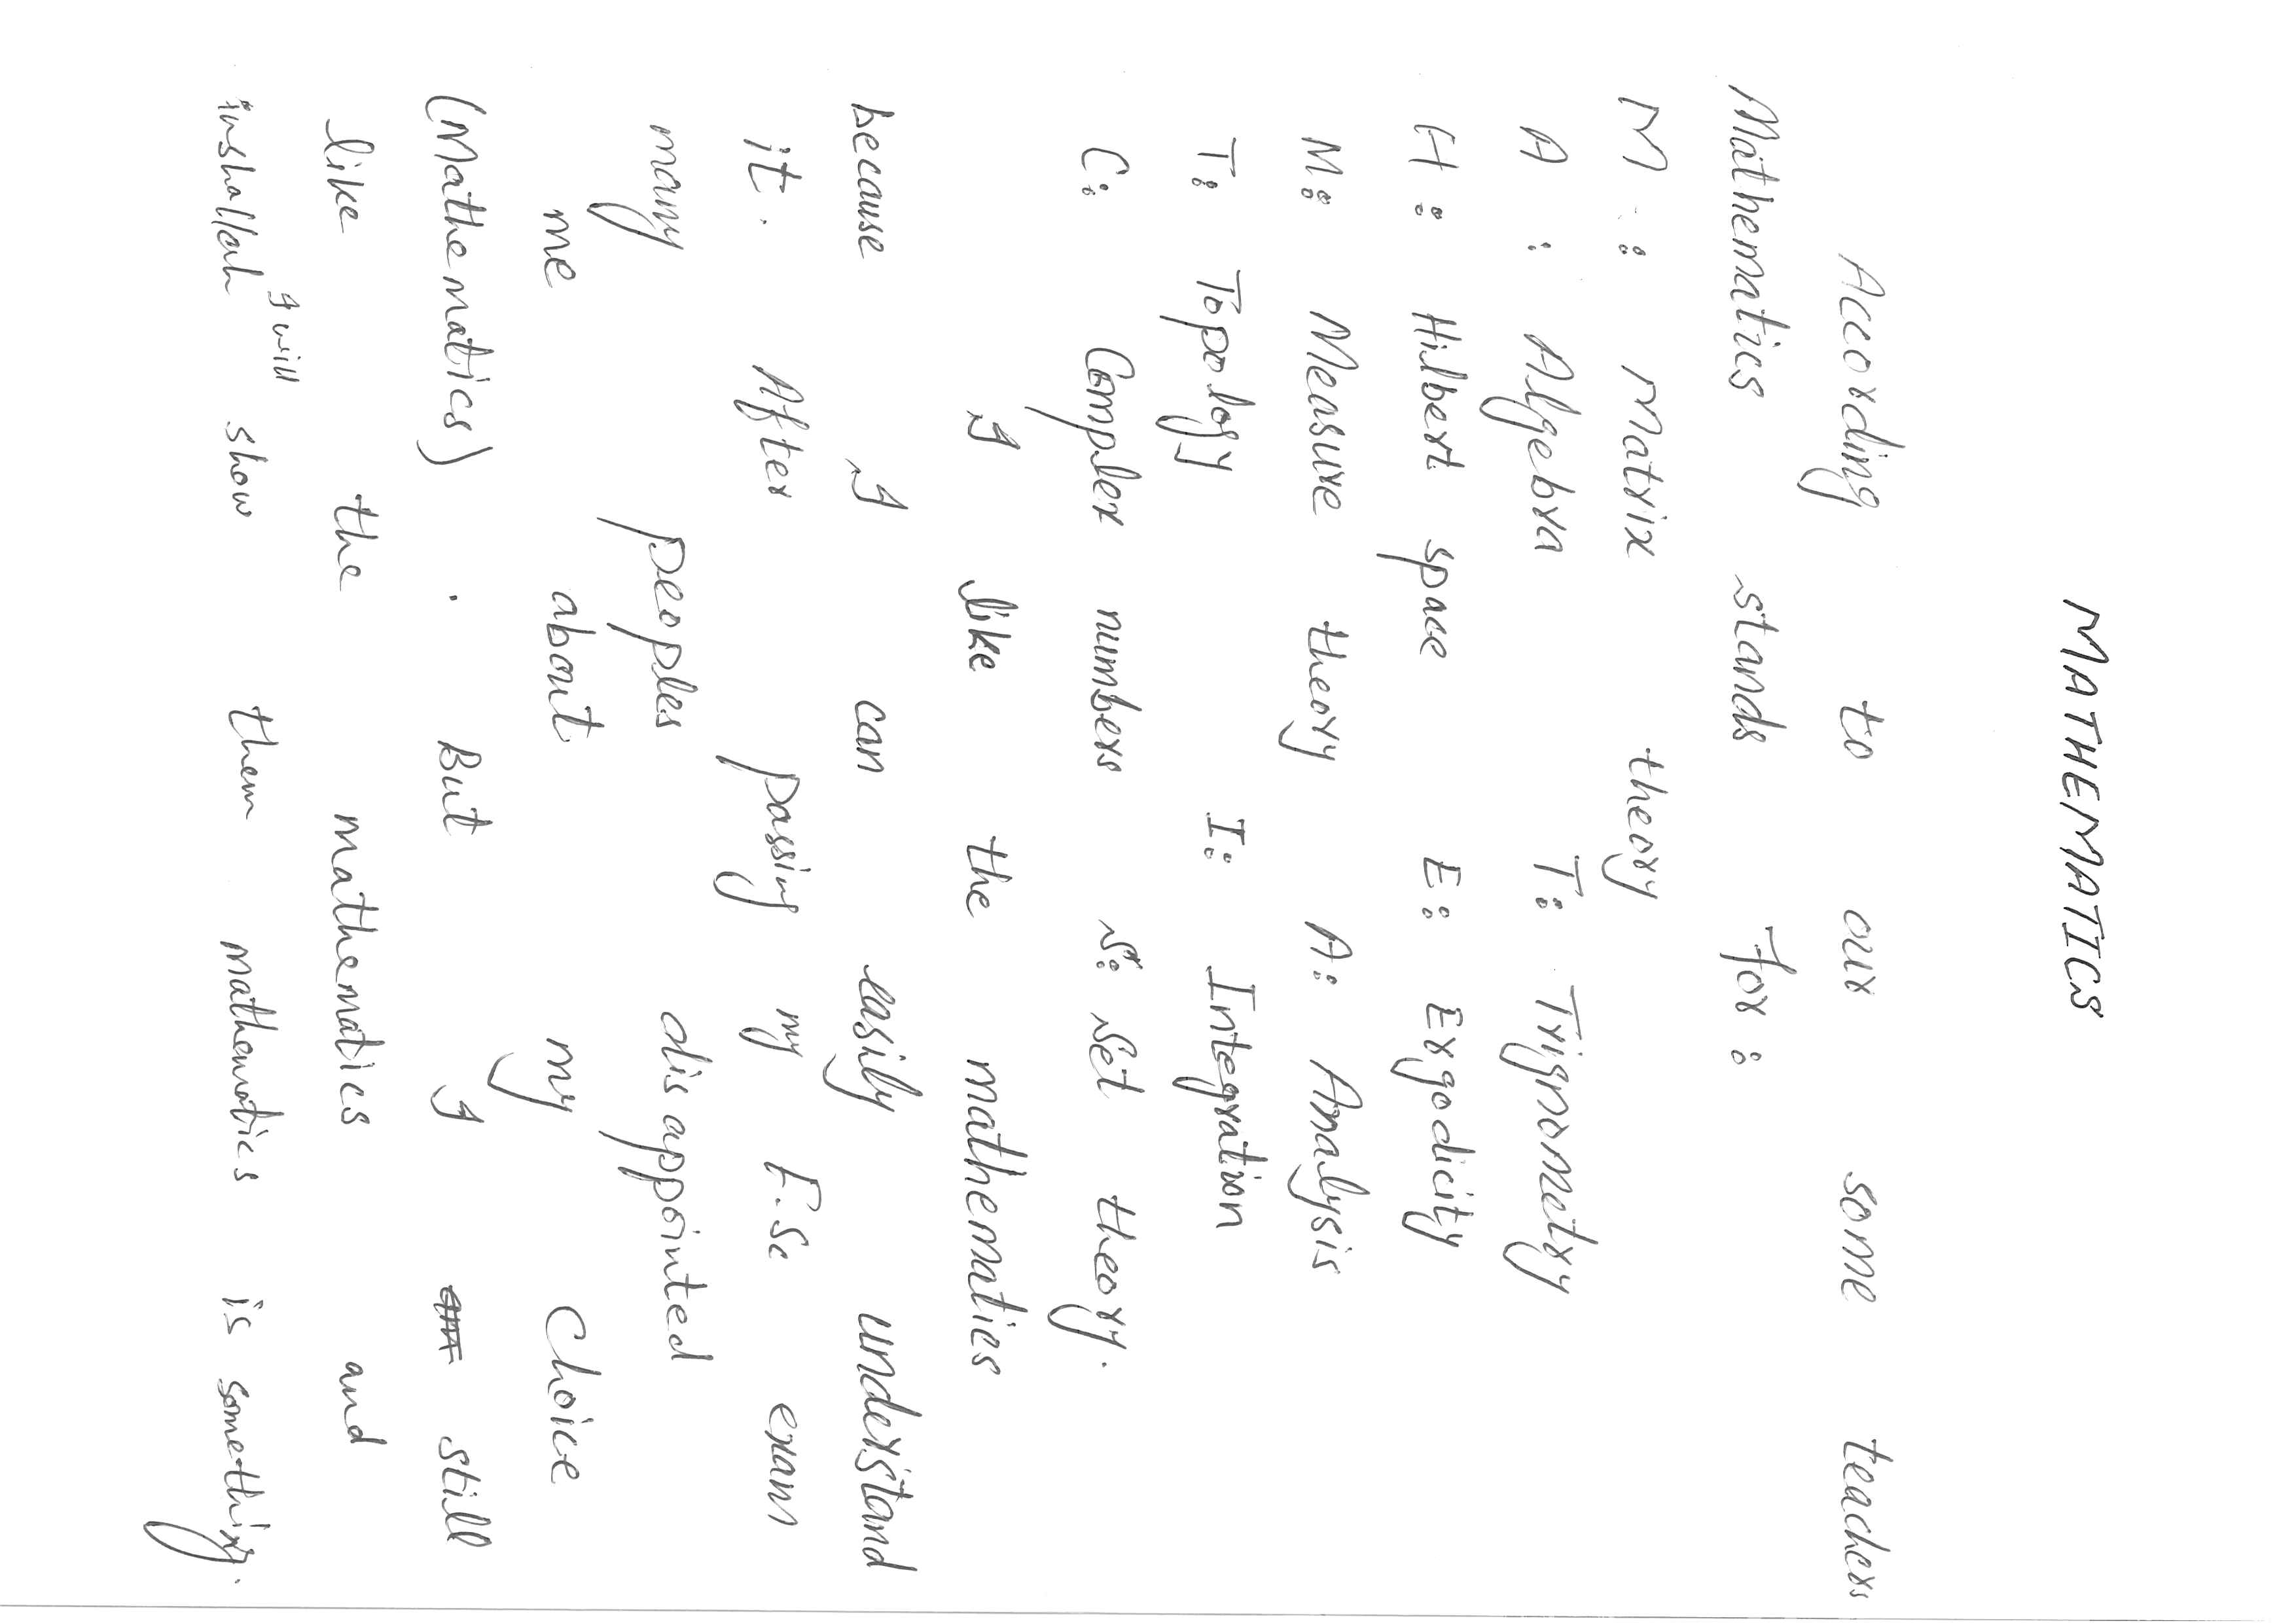 MATHEMATICS
According to our some teachers
Mathematics stands for :
M : Matrix theory
A : Algebra T: Trignometry
H : Hilbert space E: Ergodicity
M: Measure theory A: Analysis
T: Topology I: Integration
C: Complex numbers S: Set theory.
I like the mathematics
because I can easily understand
it. After passing my F.Sc exam
many peoples disappointed
me about my Choice
(Mathematics) . But I am still
like the mathematics and
inshallah I will show them mathematics is something.